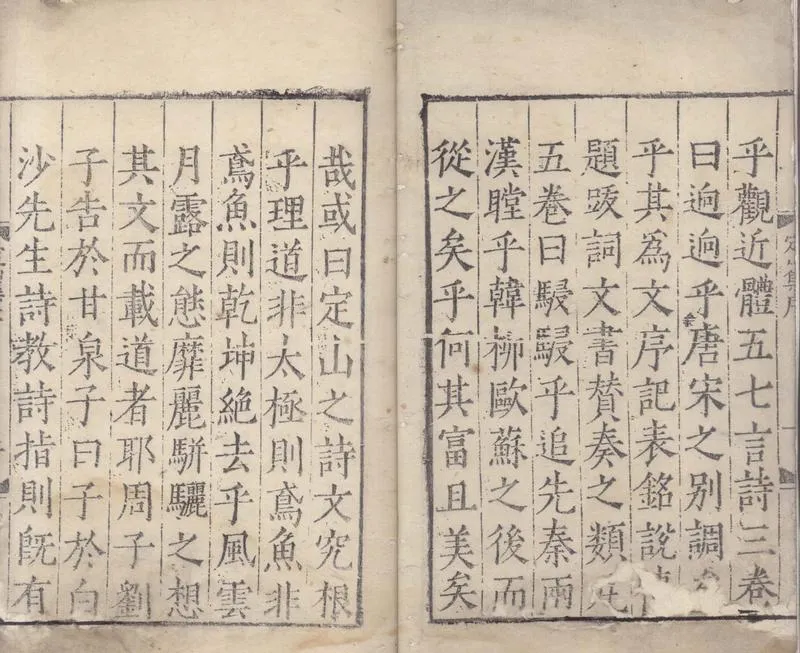 乎觀近體五七言詩三卷
曰逈逈乎唐宋之別調
乎其為文序記表銘說
題䟦詞文書贊奏之類凡
五卷曰駸駸乎追先秦兩
漢瞠乎韓柳歐蘇之後而
從之矣乎何其富且美矣
哉或曰定山之詩文究根
乎理道非太極則鳶魚非
鳶魚則乾坤絶去乎風雲
月露之態靡麗駢驪之想
其文而載道者耶周子劉
子告於甘泉子曰子於白
沙先生詩教詩指則旣有